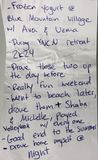 - Frozen Yogurt @
Blue Mountain Village
w/ Ava & Verna
- During YWW retreat
2k24
- Drove those two up
the day before
- Really fun weekend
Went to beach later,
drove them + Shaha
& Middle, played
Volleyball w/ each one
- Good end to the Summer
- Drove home
night